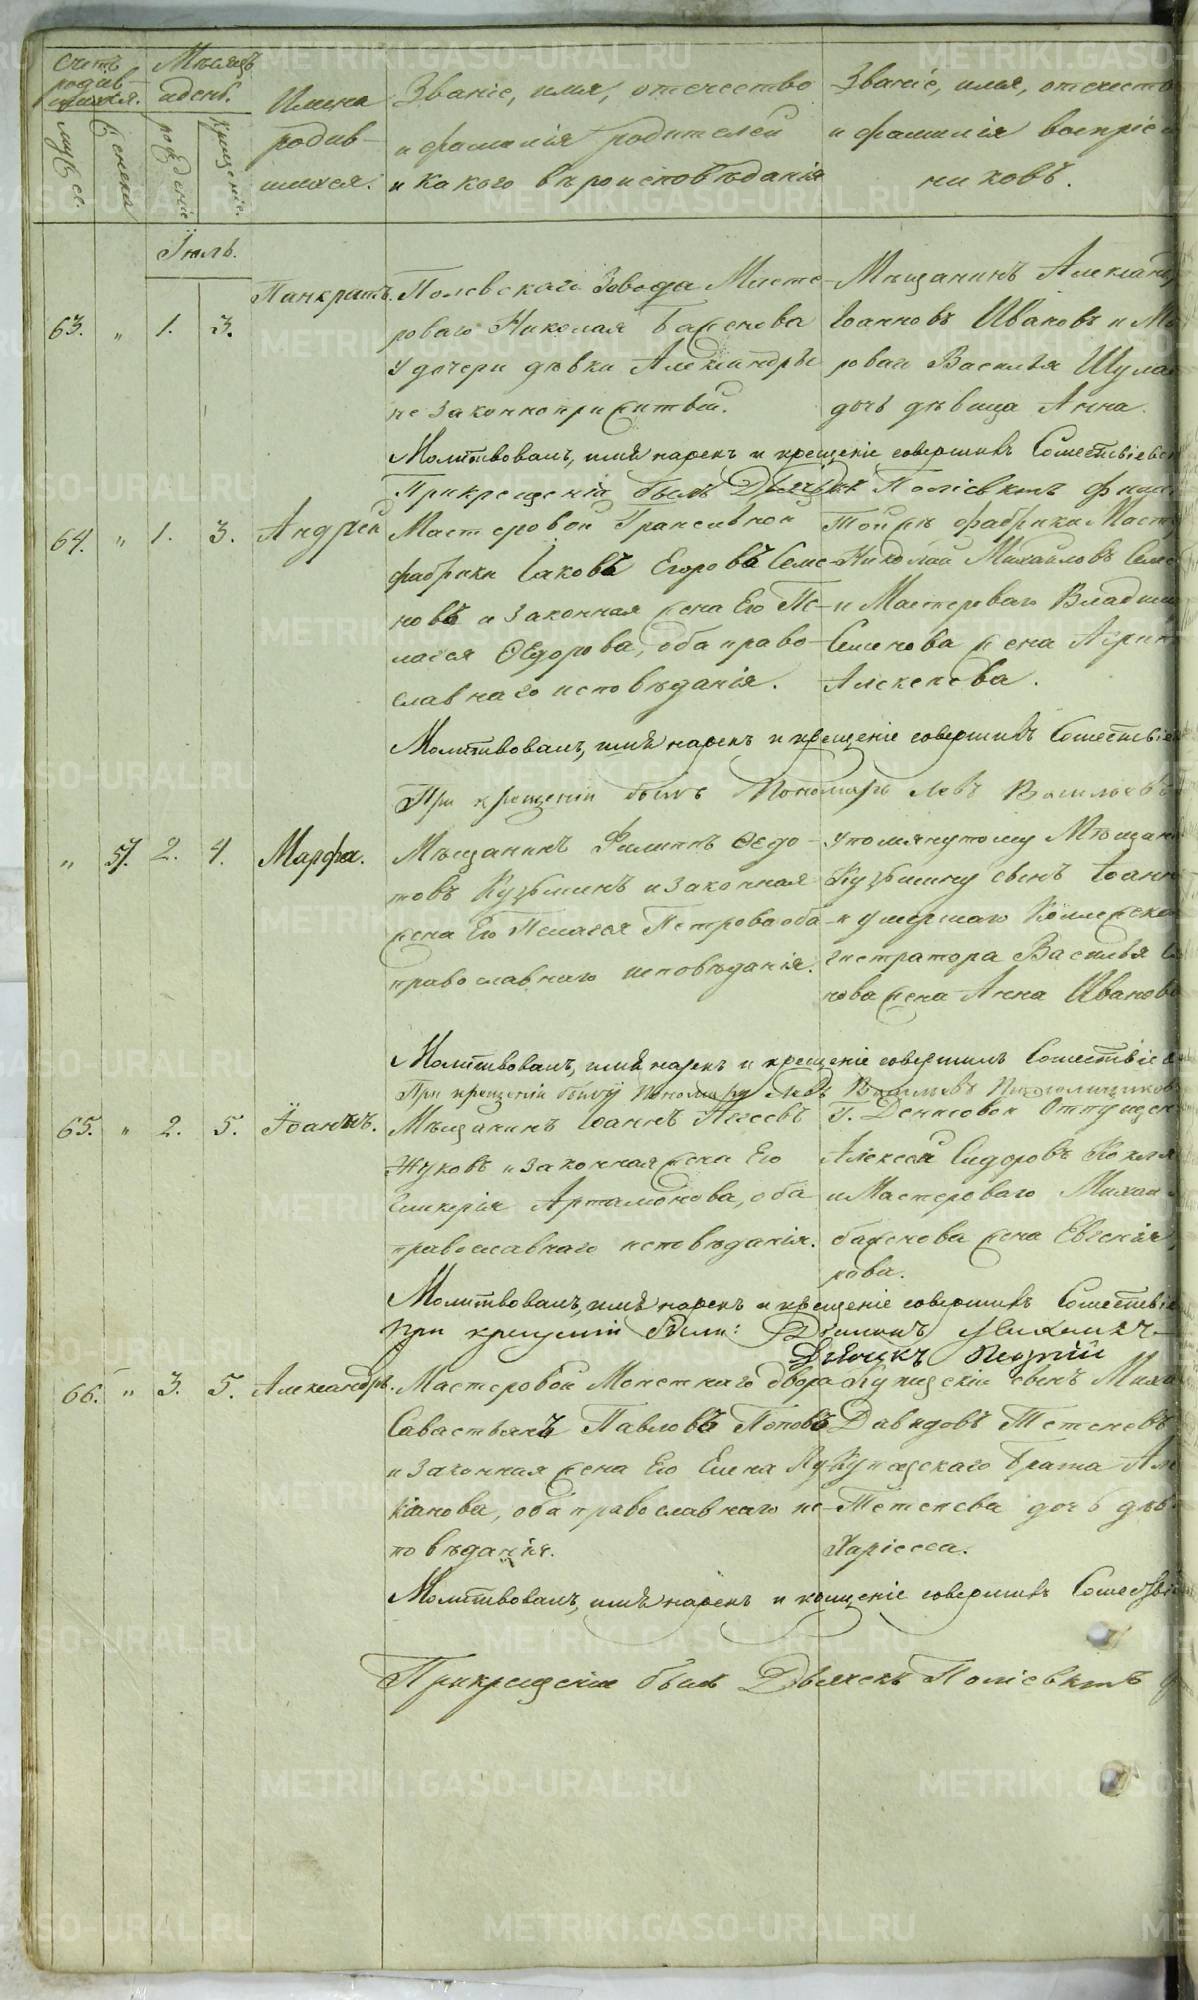 Счетъ родив-шихся.
Мѣсяцъ и день.
Имена родив-шихся.
Званіе, имя, отечество и фамилія родителей и какого вѣроисповѣданія
Званіе, имя, отечество и фамилія воспріем-никовъ.
мужес. женска рожденіе крещеніе.
Іюль.
63. " 1. 3. Панкратъ.
Полевскаго Завода Масте-
роваго Николая Баженова
у дочери дѣвки Александры
незаконноприжитый.
Мѣщанинъ Александръ
Іоанновъ Ивановъ и Мас
роваго Василья Шула
дочь дѣвица Анна.
Молитвовалъ, имя нарекъ и крещеніе совершилъ
При крещеніи былъ Дьячекъ Поліевктъ
64. " 1. 3. Андрей
Мастеровой Гранильной
фабрики Іаковъ Егоровъ Семе-
новъ и законная жена Его Пе-
лагея Ѳедорова, оба право-
славнаго исповѣданія.
Той же фабрики Маст
Николай Михайловъ Семе
и Мастероваго Владим
Семенова жена Агрип
Алексѣева.
Молитвовалъ, имя нарекъ и крещеніе совершилъ
При крещеніи былъ Пономарь Левъ Васильевъ
" 57. 2. 4. Марфа.
Мѣщанинъ Филиппъ Ѳедо-
товъ Кузьминъ и законная
жена Его Пелагея Петрова оба
православнаго исповѣданія.
Упомянутому Мѣщани
Кузьмину сынъ Іоанн
и умершаго Коллежска
гистратора Василья
нова жена Анна Иванова
Молитвовалъ, имя нарекъ и крещеніе совершилъ
При крещеніи былъ Пономарь Левъ Васильевъ
65. " 2. 5. Іоаннъ.
Мѣщанинъ Іоаннъ
Жуковъ и законная жена Его
Гликерія Артамонова, оба
православнаго исповѣданія.
Г. Денисовой Отпущен
Алексей Сидоровъ
и Мастероваго Михаи
Баженова жена Евгенія
рова.
Молитвовалъ, имя нарекъ и крещеніе совершилъ
При крещеніи были: Діаконъ
Дьячекъ Георгій
66. " 3. 5. Александръ.
Мастеровой Монетнаго двора
Савастьянъ Павловъ Поповъ
и законная жена Его Елена Лу-
кіянова, оба православнаго ис-
повѣданія.
Купецкій сынъ Миха
Давидовъ Тетеневъ
Купецкаго брата Але
Тетенева дочь дѣв
Хариесса.
Молитвовалъ, имя нарекъ и крещеніе совершилъ
При крещеніи былъ Дьячекъ Поліевктъ
METRIKI.GASO-URAL.RU